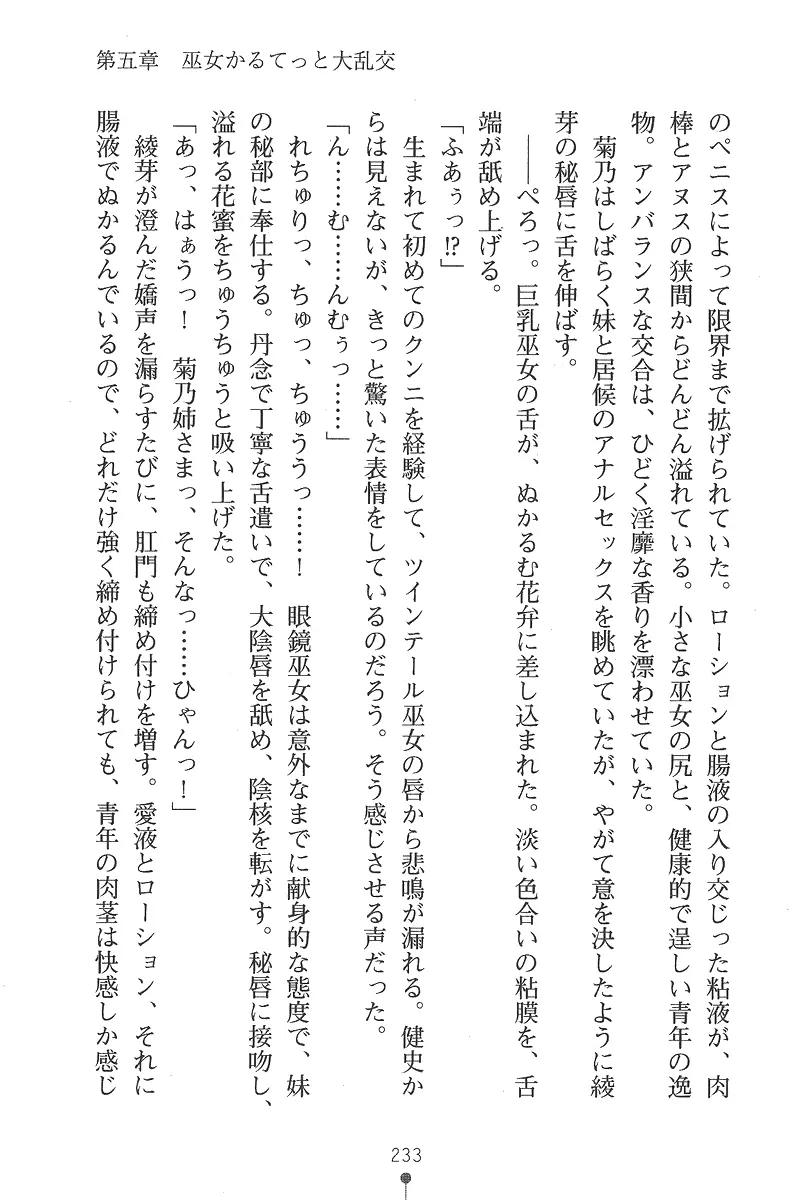 第五章　巫女かるてっと大乱交
のペニスによって限界まで拡げられていた。ローションと腸液の入り交じった粘液が、肉
棒とアヌスの狭間からどんどん溢れている。小さな巫女の尻と、健康的で逞しい青年の逸
物。アンバランスな交合は、ひどく淫靡な香りを漂わせていた。
　菊乃はしばらく妹と居候のアナルセックスを眺めていたが、やがて意を決したように綾
芽の秘唇に舌を伸ばす。
　――ぺろっ。巨乳巫女の舌が、ぬかるむ花弁に差し込まれた。淡い色合いの粘膜を、舌
端が舐め上げる。
「ふあぅっ!?」
　生まれて初めてのクンニを経験して、ツインテール巫女の唇から悲鳴が漏れる。健史か
らは見えないが、きっと驚いた表情をしているのだろう。そう感じさせる声だった。
「ん……む……んむぅっ……」
　れちゅりっ、ちゅっ、ちゅううっ……！　眼鏡巫女は意外なまでに献身的な態度で、妹
の秘部に奉仕する。丹念で丁寧な舌遣いで、大陰唇を舐め、陰核を転がす。秘唇に接吻し、
溢れる花蜜をちゅうちゅうと吸い上げた。
「あっ、はぁうっ！　菊乃姉さまっ、そんなっ……ひゃんっ！」
　綾芽が澄んだ嬌声を漏らすたびに、肛門も締め付けを増す。愛液とローション、それに
腸液でぬかるんでいるので、どれだけ強く締め付けられても、青年の肉茎は快感しか感じ
233